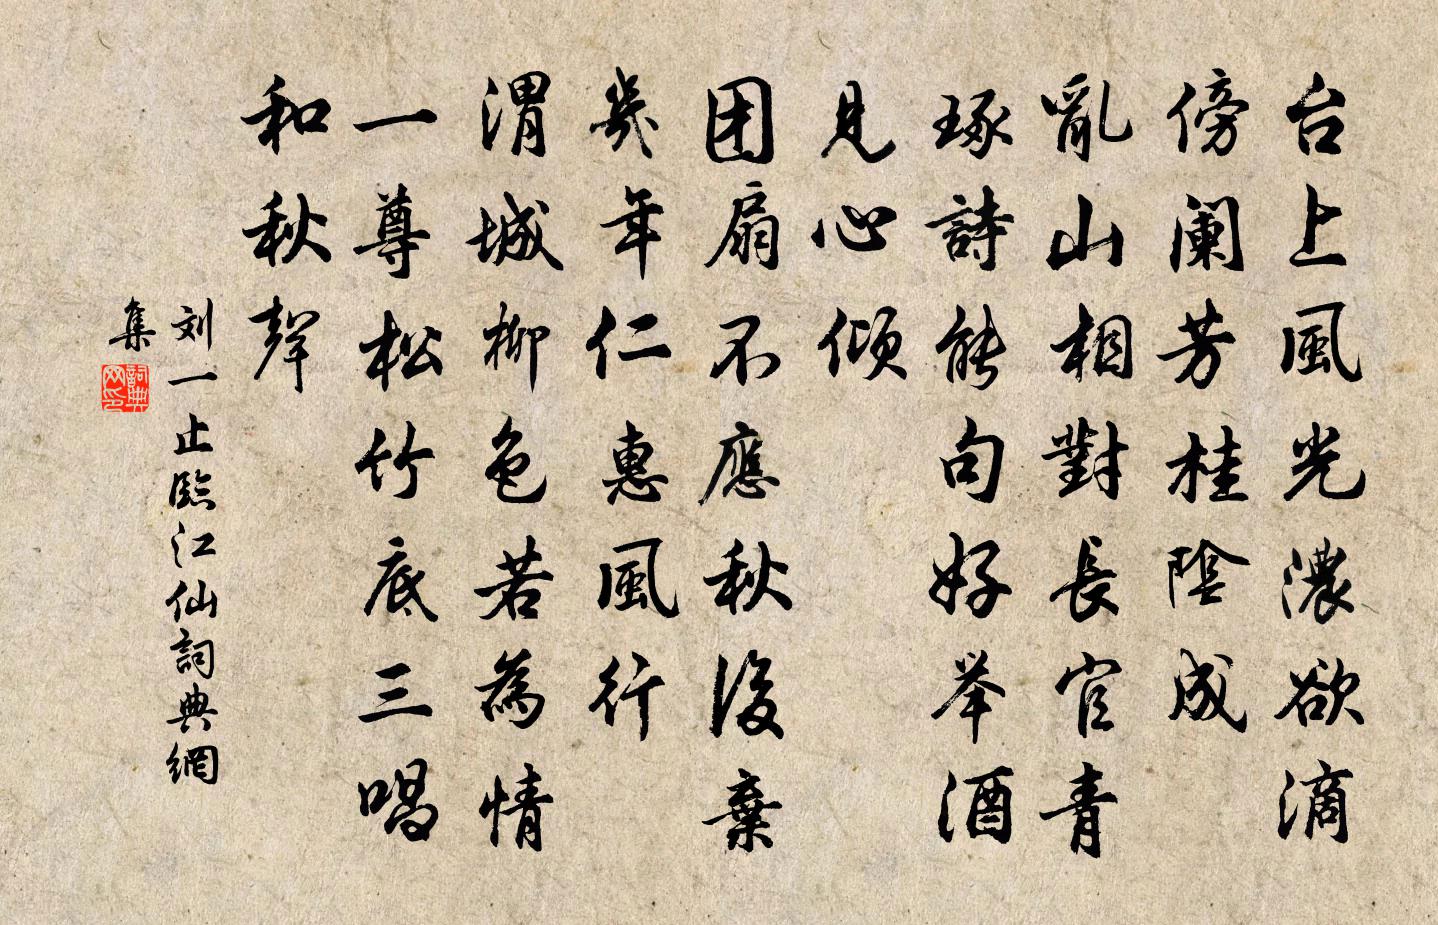 台上風光濃欲滴
傍阑芳桂陰成
亂山相對長官青
琢詩能句好举酒
見心倾
团扇不應秋後棄
幾年仁惠風行
渭城柳色若為情
一尊松竹底三唱
和秋聲
刘一止臨江仙詞典網
集
詞典网印